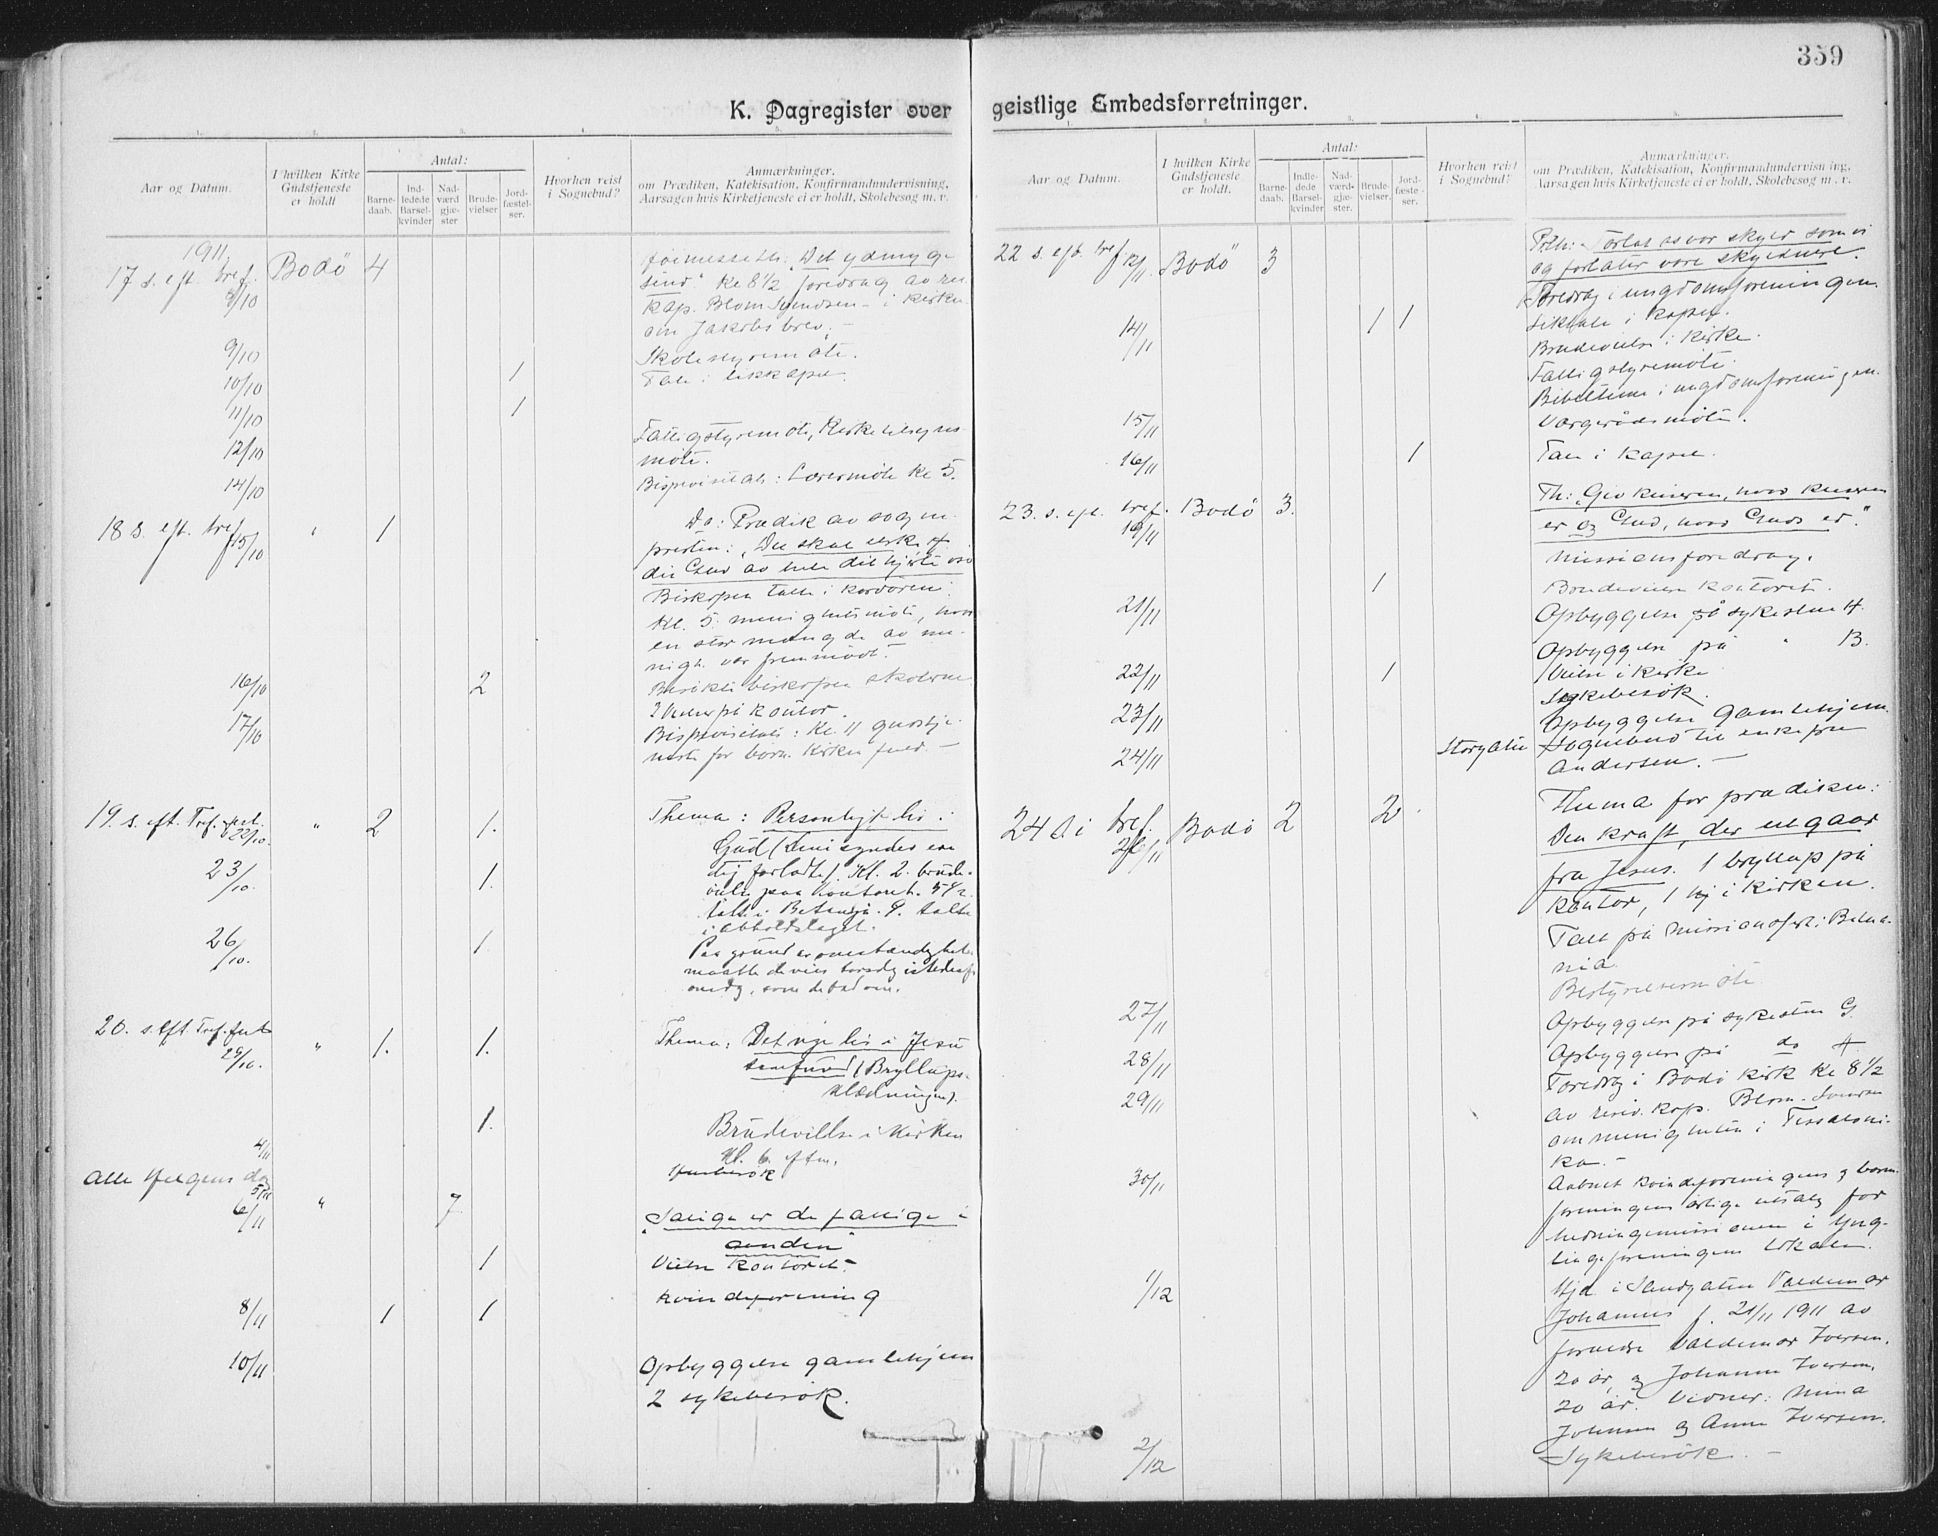 359
K. Dagregister over geistlige Embedsforretninger.
1. 2. 3. 4. 5.
Aar og Datum.
I hvilken Kirke Gudstjeneste er holdt
Antal:
Barnedaab.
Indledede Barselkvinder
Nadværdgjæster
Brudevielser
Jordfæstelser.
Hvorhen reist i Sognebud?
Anmærkninger.
om Prædiken, Katekisation, Konfirmandundervisning,
Aarsagen hvis Kirketjeneste ei er holdt, Skolebesøg m. v.
1911
17 s. eft. tref. 8/10 Bodö 4
"Det ydmyge
sind" Kl 8 1/2 foredrag av res.
kap. Blom Svendsen i kirken
om Jakobs brev. –
9/10 Skolestyremöte.
10/10 1 Tale i likkapel.
11/10 1
12/10 Fattigstyremöte, Kirketilsyns-
möte.
14/10 Bispevisitats: Lærermöte kl 5.
18 s. eft. tref. 15/10 " 1 Do: Prædik av sogne-
presten: "Du skal elske H
din Gud av hele dit hjerte osv
Biskopen talte i kordören.
Kl. 5. menighetsmöte, hvor
en stor mængde av me-
nigh. var fremmödt.
16/10 2 Besökte biskopen skolerne
2 vielser på kontor.
17/10 Bispevisitats: Kl. 11 gudstje-
neste for børn. Kirken fuld. –
19. s. eft. Tref. 22/10. " 2 1. Thema: Personligt liv i
Gud (dine synder ere
dig forladte). Kl. 2. brude-
vielse paa kontoret. 5 1/2
talte i Betania. 9. talte
i abholdslaget.
23/10. 1.
26/10. 1. Paa grund av omstændighet
maatte de vies torsdag istedenf.
onsdg, som de bad om.
20. s. eft Tref. 29/10. " 1. 1. Thema: Det nye liv i Jesu
samfund (Bryllups-
klædningen).
4/11 1. Brudevielse i kirken
Kl. 6. eftm.
Alle Helgens dag 5/11 " 7
6/11
"Salige er de fattige i
aanden"
1 Vielse kontoret.
kvindeforening
8/11 1 1
10/11 Opbyggelse gamlehjem
2 sykebesök.
1. 2. 3. 4. 5.
Aar og Datum.
I hvilken Kirke Gudstjeneste er holdt.
Antal:
Barnedaab.
Indledede Barselkvinder
Nadværdgjæster.
Brudevielser.
Jordfæstelser.
Hvorhen reist i Sognebud?
Anmærkninger.
om Prædiken, Katekisation, Konfirmandundervisning,
Aarsagen hvis Kirketjeneste ei er holdt, Skolebesøg m. v.
22 s. eft. tref 12/11. Bodö 3 Forlat os vor skyld som vi
og forlater vore skyldnere.
Foredrag i ungdomsforeningen.
14/11 1 1 i kapel.
Brudevielse i kirke.
Fattigstyremöte
Bibeltime i ungdomsforeningen.
15/11 Vergerådsmöte.
16/11 1 Tale i kapel.
23. s. eft. tref. 19/11 Bodö 3. Th: "Giv keiseren, hvad keiserens
er og Gud, hvad Guds er".
Missionsforedrag.
1 Brudevielse kontoret.
21/11 Opbyggelse på sykestue H.
Opbyggelse på " B.
22/11 1 Vielse i kirke
Sykebesök.
23/11 Opbyggelse gamlehjem.
24/11 Storgaten Sognebud til enkefru
Andersen. –
24 s i tref. 26/11 Bodö 2 2 Thema for prædiken:
Den kraft, der utgaar
fra Jesus. 1 bryllup på
kontor, 1 i kirken.
Talt på missionsfest i Beta-
nia.
Bestyrelsesmöte
27/11 Opbyggelse på sykestue G.
28/11 Opbyggelse på do H
29/11 Foredrag i Bodö kirk kl 8 1/2
av resid. kap. Blom-Svendsen
om menigheten i Tessaloni-
ka. –
30/11 Aabnet kvindeforeningens og barne-
foreningens årlige utsalg for
hedningemissionen i Yng-
lingeforeningens lokale.
1/12 Hjd i Sandgaten Valdemar
Johannes f. 21/11 1911 av
foreldre Valdemar Iversen.
20 år og Johanne Iversen.
20 år. Vidner: Mina
Johnsen og Anne Iversen.
2/12 Sykebesök. –